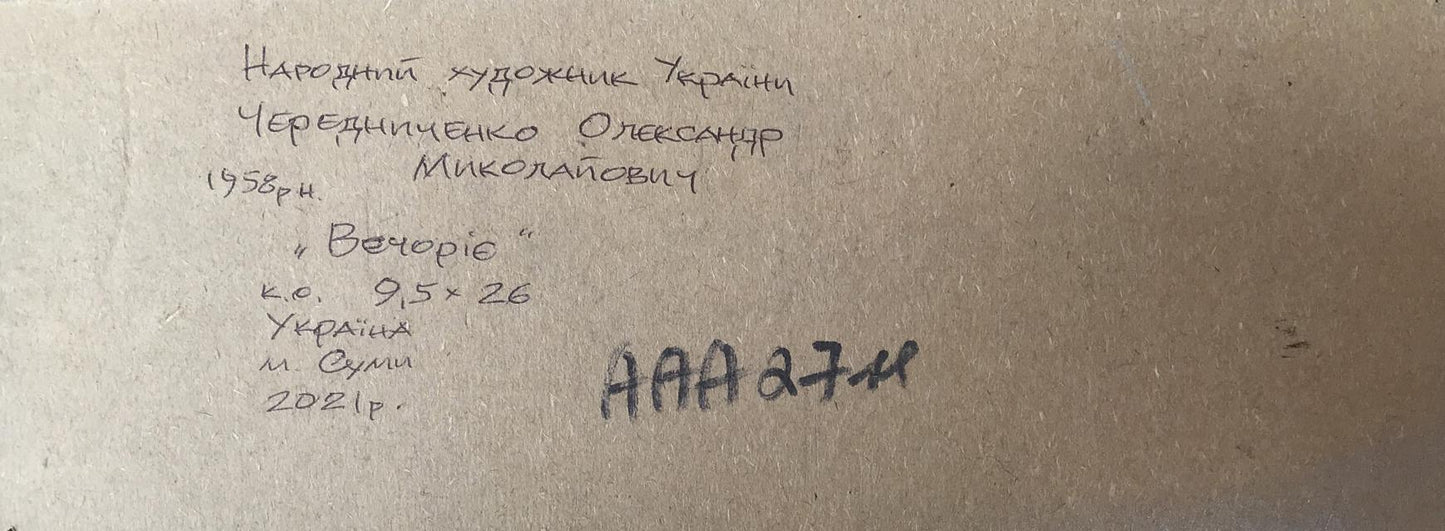 Народний художник України
Чередниченко Олександр
Миколайович
1958 р н.
„Вечоріє“
к.о. 9,5 × 26
Україна
м. Суми
2021 р.
ААА 27 м